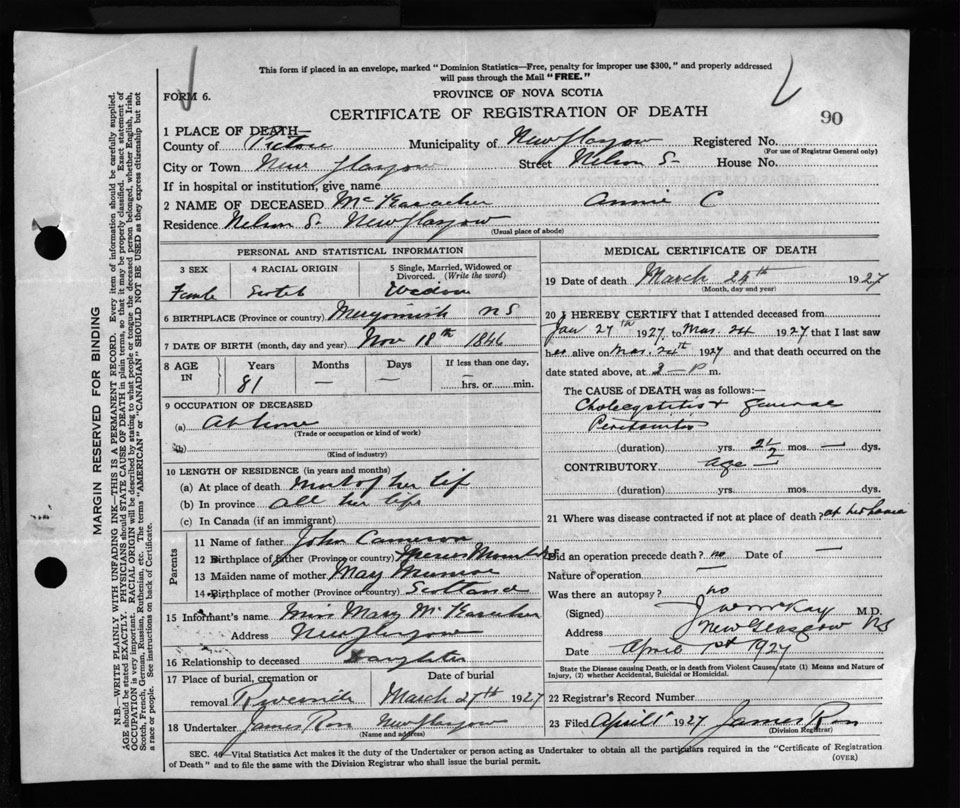 This form if placed in an envelope, marked "Dominion Statistics—Free, penalty for improper use $300," and properly addressed
will pass through the Mail "FREE."
FORM 6.
PROVINCE OF NOVA SCOTIA
CERTIFICATE OF REGISTRATION OF DEATH
90
1 PLACE OF DEATH—
County of Pictou Municipality of New Glasgow Registered No.
(For use of Registrar General only)
City or Town New Glasgow Street Nelson S— House No.
If in hospital or institution, give name
2 NAME OF DECEASED McKeracher Annie C
Residence Nelson S. New Glasgow
(Usual place of abode)
MARGIN RESERVED FOR BINDING
N.B.—WRITE PLAINLY WITH UNFADING INK—THIS IS A PERMANENT RECORD. Every item of information should be carefully supplied.
AGE should be stated EXACTLY. PHYSICIANS should STATE CAUSE OF DEATH in plain terms, so that it may be properly classified. Exact statement of
OCCUPATION is very important. RACIAL ORIGIN will be described by stating to what people or tongue the deceased person belonged, whether English, Irish,
Scotch, French, German, Russian, Ruthenian, etc. The terms "AMERICAN" or "CANADIAN" SHOULD NOT BE USED as they express citizenship but not
a race or people. See instructions on back of Certificate.
PERSONAL AND STATISTICAL INFORMATION
3 SEX
4 RACIAL ORIGIN
5 Single, Married, Widowed or
Divorced. (Write the word)
Female Scotch Widow
6 BIRTHPLACE (Province or country) Merigomish NS
7 DATE OF BIRTH (month, day and year) Nov 18th 1846
8 AGE
IN
Years Months Days
If less than one day,
81 — — —
hrs. or min.
9 OCCUPATION OF DECEASED
(a) At home
(Trade or occupation or kind of work)
(b)
(Kind of industry)
10 LENGTH OF RESIDENCE (in years and months)
(a) At place of death Most of her lif
(b) In province all her life
(c) In Canada (if an immigrant)
Parents
11 Name of father John Cameron
12 Birthplace of father (Province or country)
13 Maiden name of mother May Munroe
14 Birthplace of mother (Province or country) Scotland
15 Informant's name Miss Mary McKeracher
Address New Glasgow
16 Relationship to deceased Daughter
17 Place of burial, cremation or
removal Riverside
Date of burial
March 27th 1927
18 Undertaker James Ross New Glasgow
(Name and address)
MEDICAL CERTIFICATE OF DEATH
19 Date of death March 24th 1927
(Month, day and year)
20 I HEREBY CERTIFY that I attended deceased from
Jan 27th 1927 to Mar. 24 1927 that I last saw
her alive on Mar. 24th 1927 and that death occurred on the
date stated above, at 3— P m.
The CAUSE OF DEATH was as follows:—
Cholecystitis & general
Peritonitis
(duration) yrs. 2½ mos. — dys.
CONTRIBUTORY age —
(duration) yrs. mos. dys.
21 Where was disease contracted if not at place of death? at her home
Did an operation precede death? no Date of —
Nature of operation —
Was there an autopsy? no
(Signed) J W McKay M.D.
Address New Glasgow NS
Date April 1st 1927
State the Disease causing Death, or in death from Violent Causes, state (1) Means and Nature of
Injury, (2) whether Accidental, Suicidal or Homicidal.
22 Registrar's Record Number
23 Filed April 1 1927 James Ross
(Division Registrar)
SEC. 46—Vital Statistics Act makes it the duty of the Undertaker or person acting as Undertaker to obtain all the particulars required in the "Certificate of Registration
of Death" and to file the same with the Division Registrar who shall issue the burial permit.
(OVER)